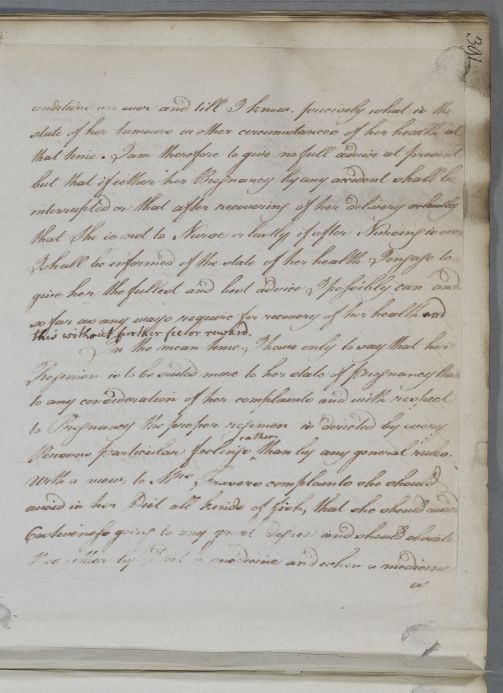 301
condition are over and till I know precisely what is the
state of her tumours or other circumstances of her health at
that time. I am therefore to give no full advice at present
but that if either her Pregnancy by any accident shall be
interrupted or that after recovering of her delivery
that She is not to Nurse or lastly if after Nursing is over
I shall be informed of the state of her health I engage to
give her the fullest and best advice I possibly can and
so far as any ways requisite for recovery of her health and
this without further fee or reward.
In the mean time, I have only to say that her
Regimen is to be suited more to her state of pregnancy than
to any consideration of her complaints and with respect
to Pregnancy the proper regimen is directed by every
Persons particular feelings rather than by any general rules.
With a view to Mrs complaints she should
avoid in her Diet all kinds of fish, that she should avoid
Costiveness going to any great degree and should obviate
either by Diet or medicine and when a medicine